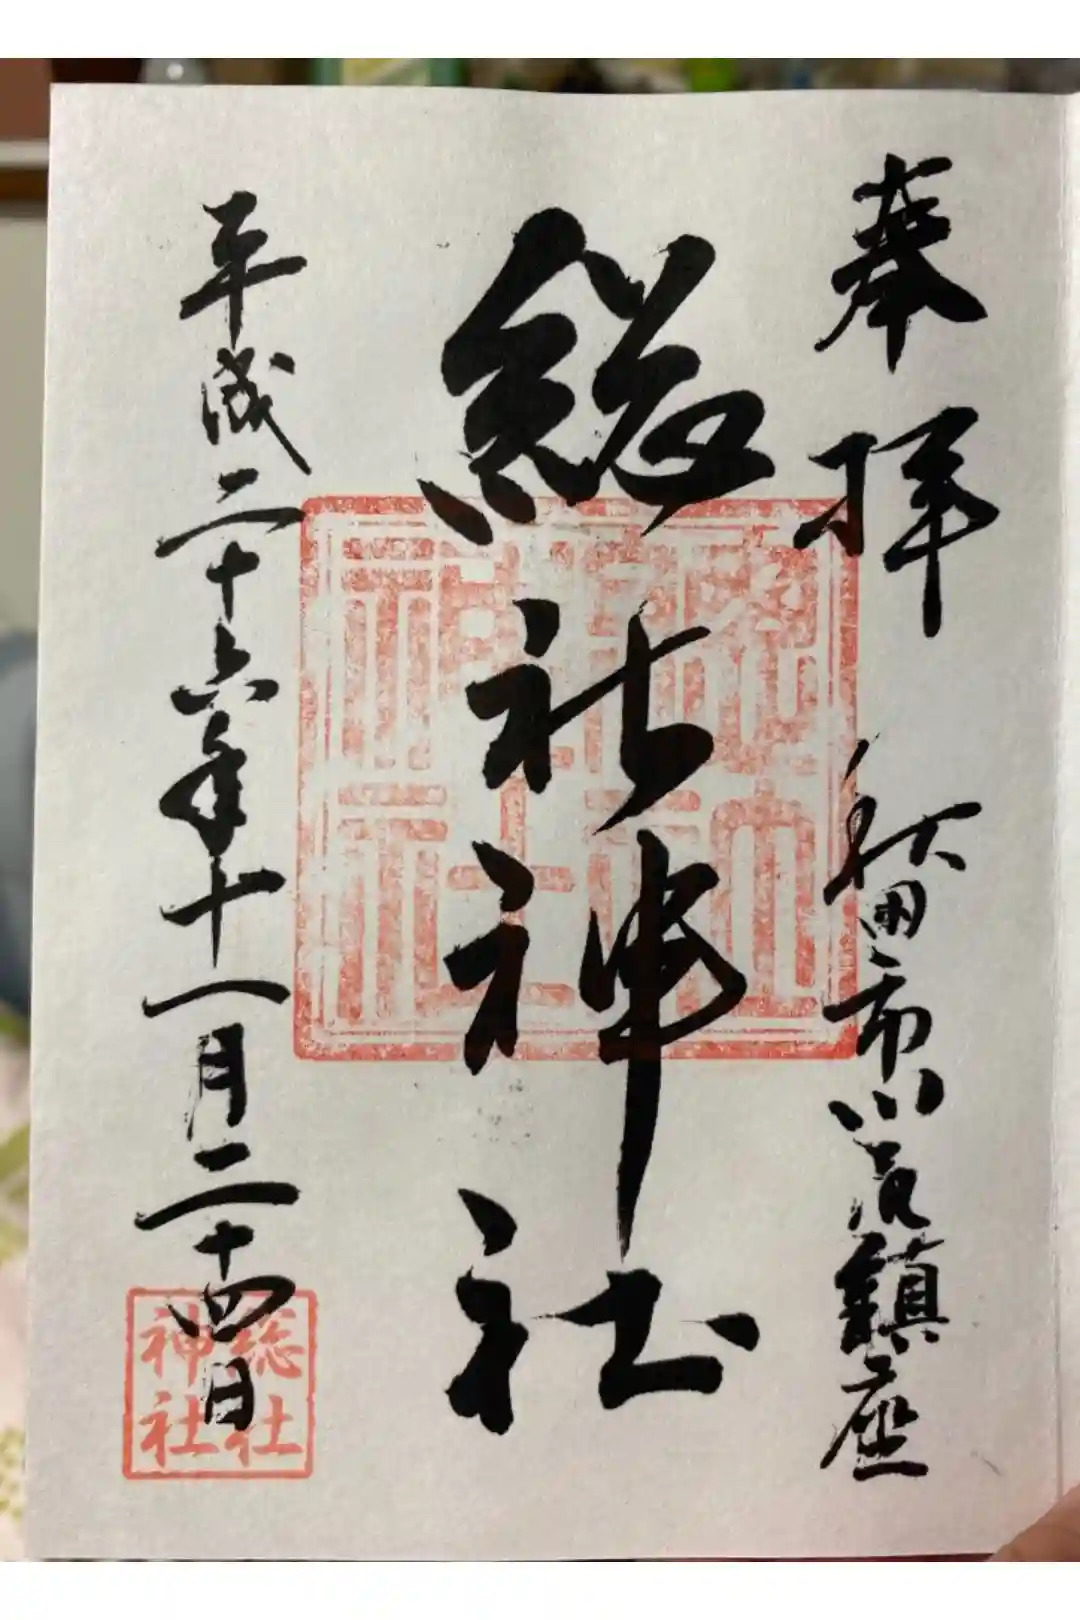 奉拝
秋田市川尻鎮座
総社神社
平成二十六年十一月二十四日
総社
神社